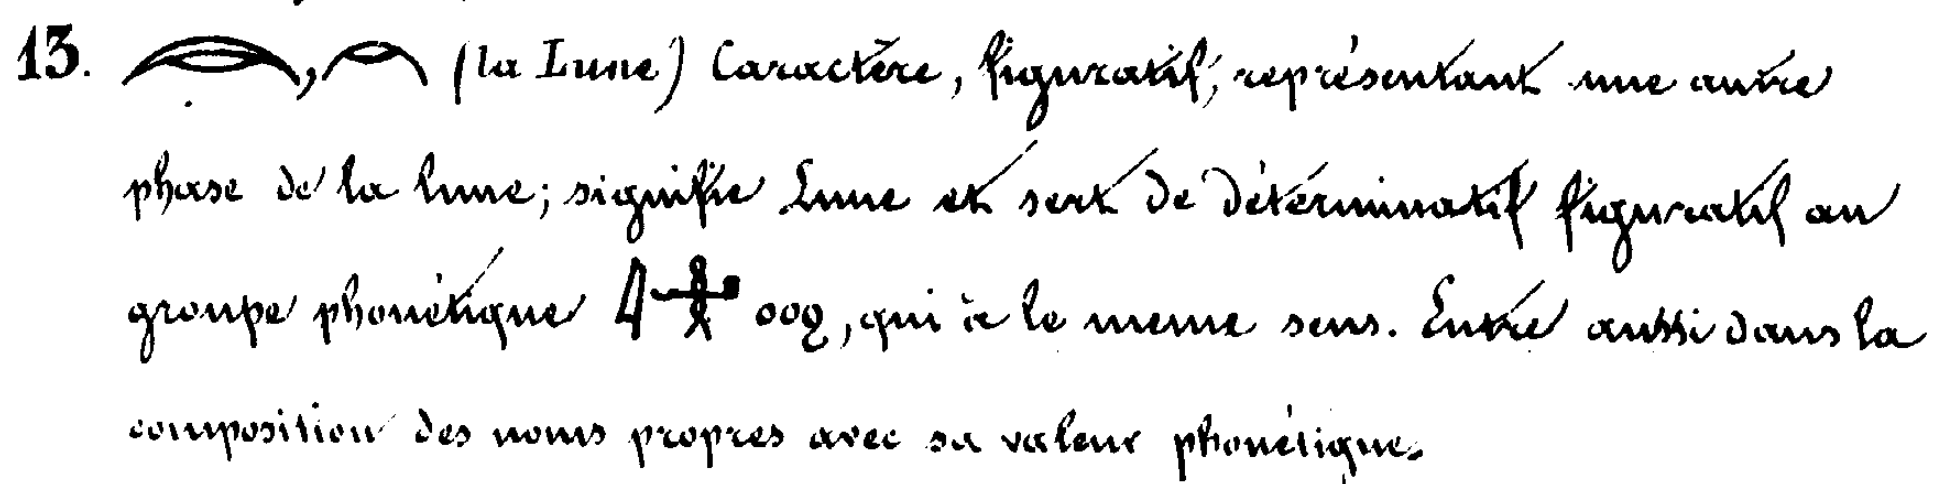 13. 𓇹, 𓇹 (la Lune) Caractère, figuratif, représentant une autre
phase de la lune; signifie Lune et sert de déterminatif figuratif au
groupe phonétique ooϩ, qui à le meme sens. Entre aussi dans la
composition des noms propres avec sa valeur phonétique.